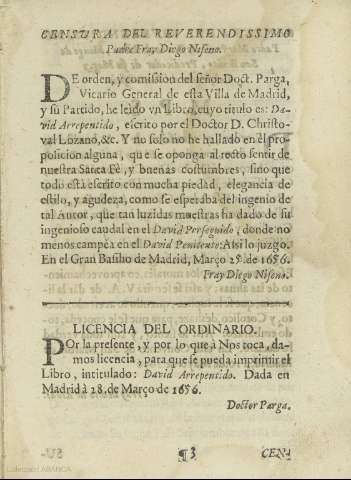 CENSURA DEL REVERENDISSIMO
Padre Fray Diego Niseno.
DE orden, y comission del señor Doct. Parga,
Vicario General de esta Villa de Madrid,
y su Partido, he leido vn Libro, cuyo titulo es: Da-
vid Arrepentido, escrito por el Doctor D. Christo-
val Lozano, &c. Y no solo no he hallado en èl pro-
posicion alguna, que se oponga al recto sentir de
nuestra Santa Fè, y buenas costumbres, sino que
todo està escrito con mucha piedad, elegancia de
estilo, y agudeza, como se esperaba del ingenio de
tal Autor, que tan luzidas muestras ha dado de su
ingenioso caudal en el David Perseguido, donde no
menos campèa en el David Penitente: Assi lo juzgo.
En el Gran Basilio de Madrid, Março 25. de 1656.
Fray Diego Niseno.
LICENCIA DEL ORDINARIO.
POr la presente, y por lo que à Nos toca, da-
mos licencia, para que se pueda imprimir el
Libro, intitulado: David Arrepentido. Dada en
Madrid à 28. de Março de 1656.
Doctor Parga.
¶3 CEN-
Colección ABANCA